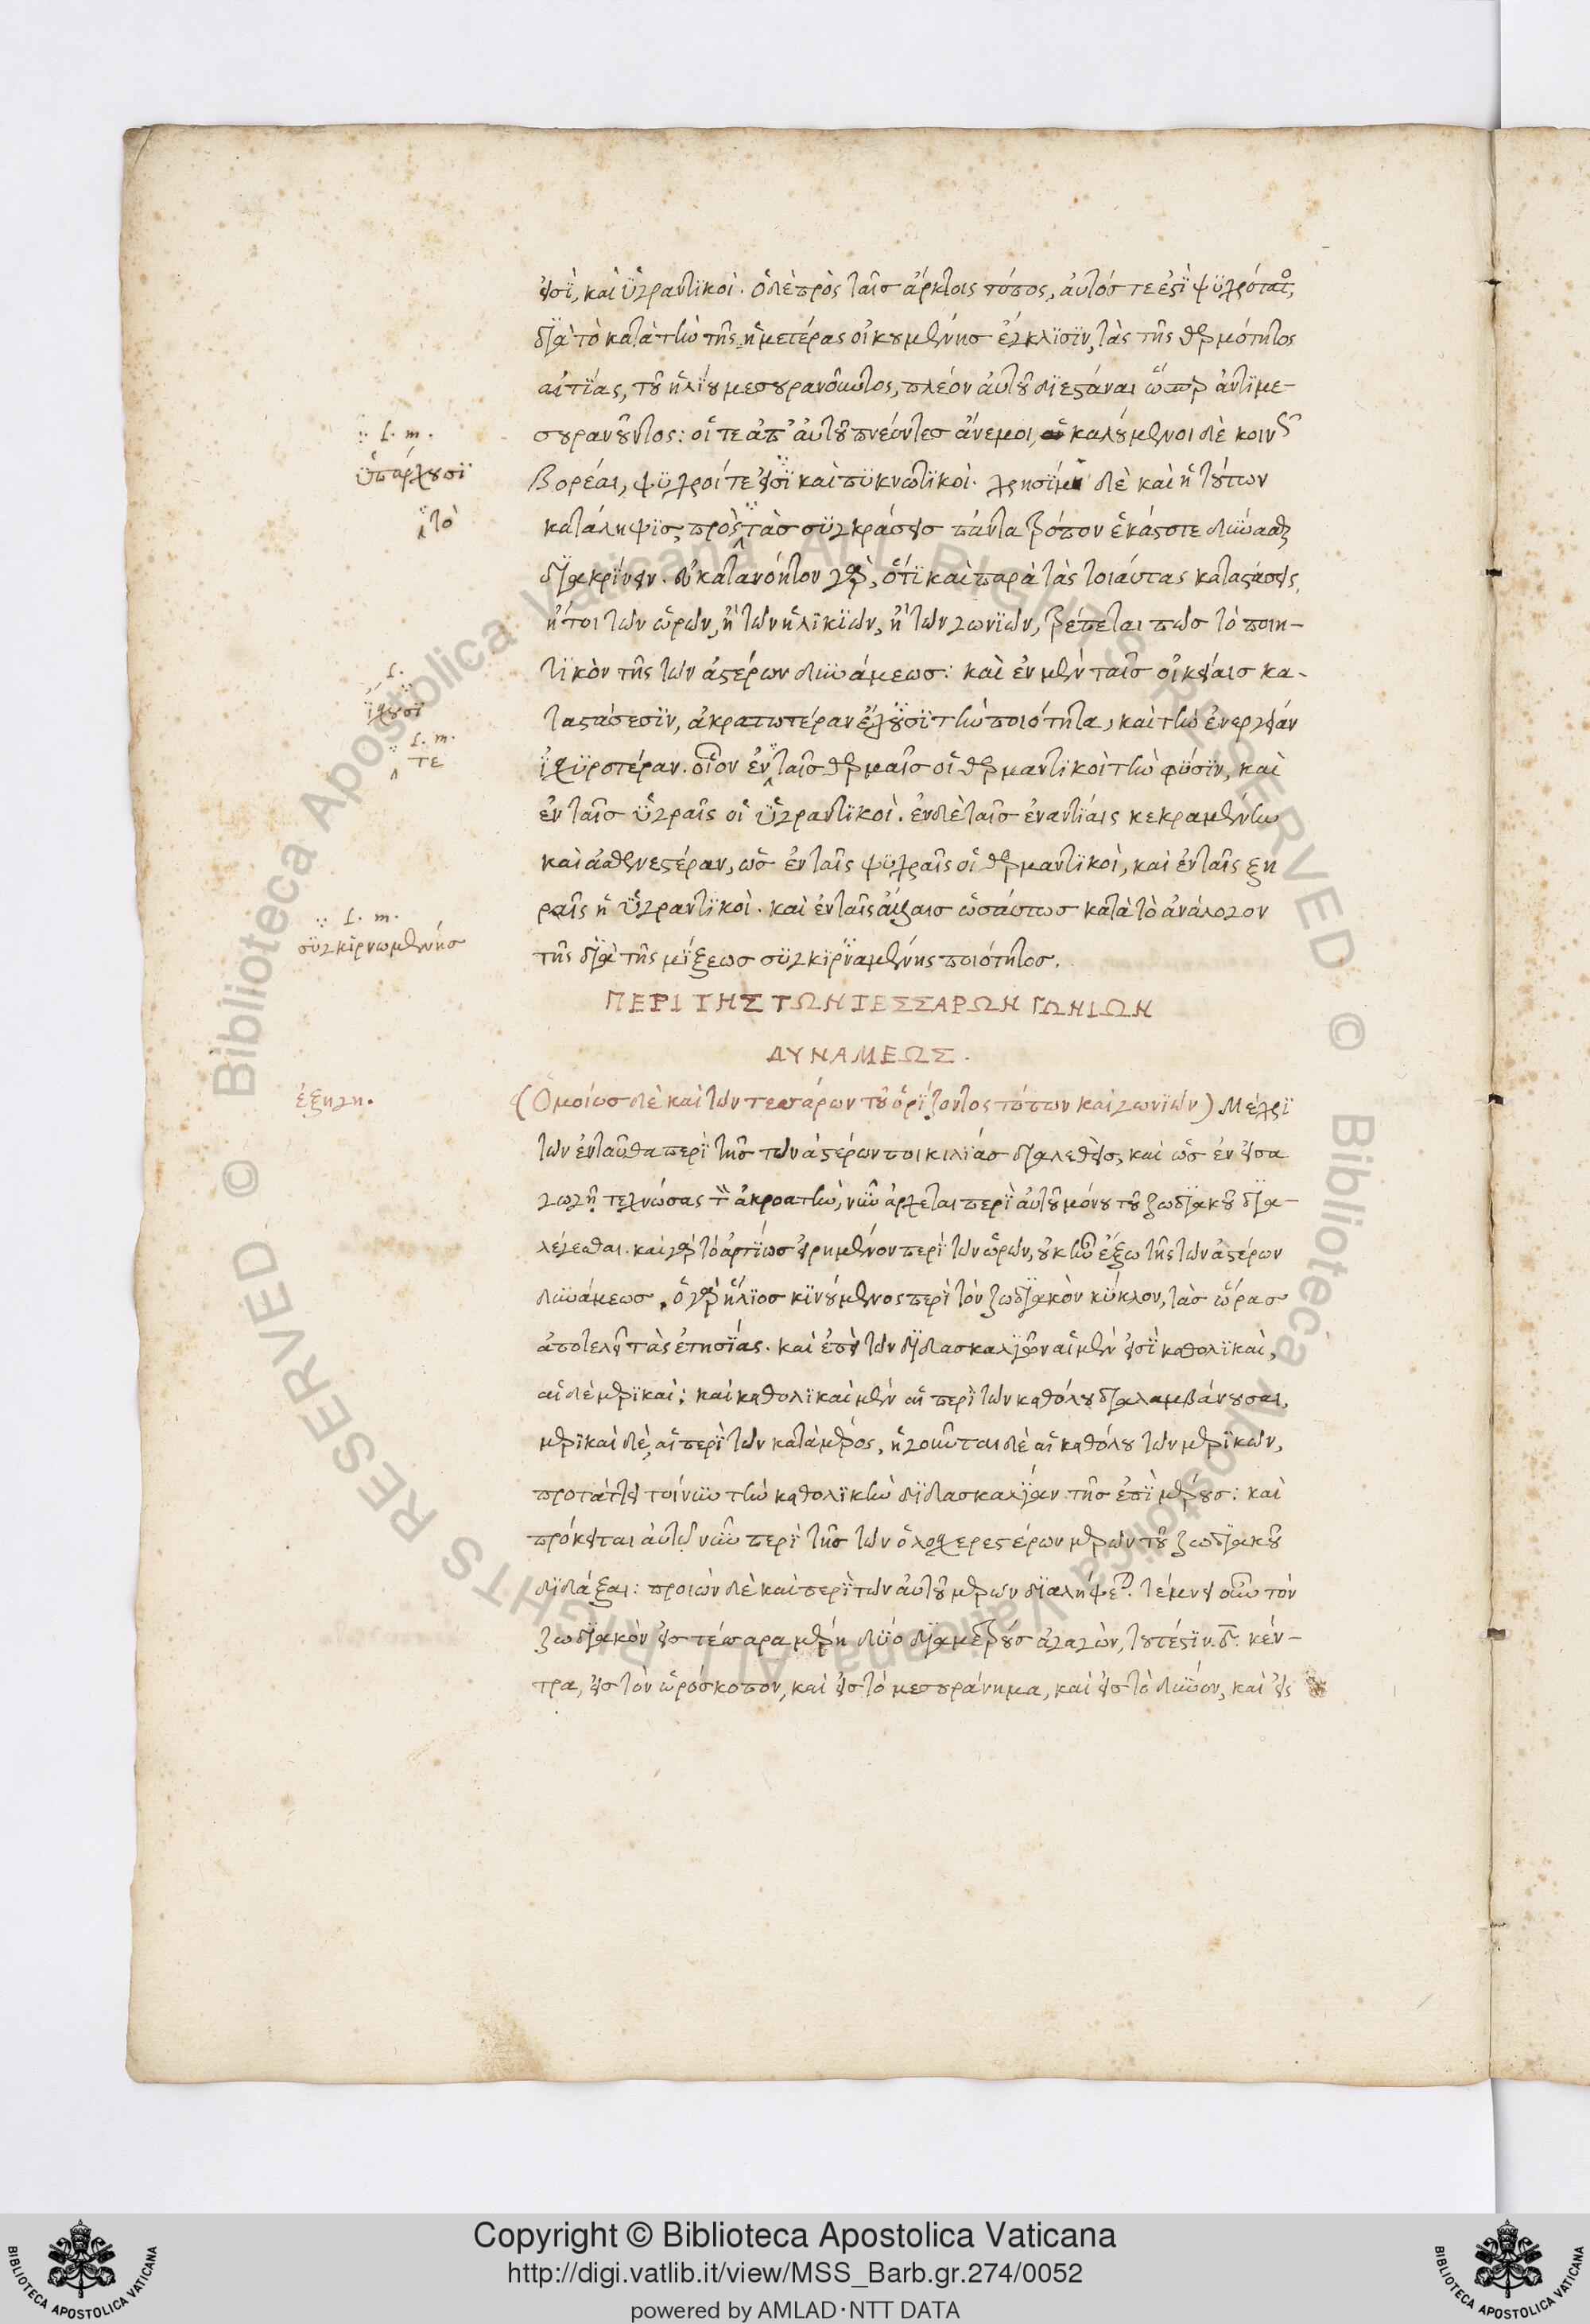 εἰσὶ, καὶ ὑγραντικοί. ὁ δὲ πρὸς ταῖς ἄρκτοις τόπος, αὐτός τε ἐστὶ ψυχρότατος,
διὰ τὸ κατὰ τὴν τῆς ἡμετέρας οἰκουμένης ἔγκλισιν, τὰς τῆς θερμότητος
αἰτίας, τοῦ ἡλίου μεσουρανοῦντος, πλέον αὐτοῦ διεστάναι ὥσπερ ἀντιμε-
σουρανοῦντος: οἵ τε ἀπ' αὐτοῦ πνέοντες ἄνεμοι, καλούμενοι δὲ κοινῶς
·· l. m.
ὑπάρχουσι
βορέαι, ψυχροί τε εἰσὶ καὶ πυκνωτικοί. χρησίμη δὲ καὶ ἡ τούτων
τὸ
κατάληψις, πρὸς τὰς συγκράσεις πάντα τρόπον ἑκάστοτε δύνασθαι
διακρίνειν. εὐκατανόητον γὰρ, ὅτι καὶ παρὰ τὰς τοιαύτας καταστάσεις,
ἤτοι τῶν ὡρῶν, ἢ τῶν ἡλικιῶν, ἢ τῶν γωνιῶν, τρέπεται πως τὸ ποιη-
τικὸν τῆς τῶν ἀστέρων δυνάμεως: καὶ ἐν μὲν ταῖς οἰκείαις κα-
l.
ἴσχουσι
ταστάσεσιν, ἀκρατωτέραν ἔχουσι τὴν ποιότητα, καὶ τὴν ἐνέργειαν
l. m.
τε
ἰσχυροτέραν. οἷον ἐν ταῖς θερμαῖς οἱ θερμαντικοὶ τὴν φύσιν, καὶ
ἐν ταῖς ὑγραῖς οἱ ὑγραντικοί. ἐν δὲ ταῖς ἐναντίαις κεκραμένην
καὶ ἀσθενεστέραν, ὡς ἐν ταῖς ψυχραῖς οἱ θερμαντικοὶ, καὶ ἐν ταῖς ξη
ραῖς ἡ ὑγραντικοί. καὶ ἐν ταῖς ἄλλαις ὡσαύτως κατὰ τὸ ἀνάλογον
·· l. m.
συγκιρνωμένης
τῆς διὰ τῆς μίξεως συγκιρναμένης ποιότητος.
ΠΕΡΙ ΤΗΣ ΤΩΝ ΤΕΣΣΑΡΩΝ ΓΩΝΙΩΝ
ΔΥΝΑΜΕΩΣ.
ἐξηγη.
(Ὁμοίως δὲ καὶ τῶν τεσσάρων τοῦ ὁρίζοντος τόπων καὶ γωνιῶν) Μέχρι
τῶν ἐνταῦθα περὶ τῆς τῶν ἀστέρων ποικιλίας διαλεχθεὶς, καὶ ὡς ἐν εἰσα
γωγῇ τεχνώσας τὸν ἀκροατὴν, νῦν ἄρχεται περὶ αὐτοῦ μόνου τοῦ ζωδιακοῦ δια-
λέγεσθαι. καὶ γὰρ τὸ ἀρτίως εἰρημένον περὶ τῶν ὡρῶν, οὐκ ἦν ἔξω τῆς τῶν ἀστέρων
δυνάμεως. ὁ γὰρ ἥλιος κινούμενος περὶ τὸν ζωδιακὸν κύκλον, τὰς ὥρας
ἀποτελεῖ τὰς ἐτησίας. καὶ ἐπεὶ τῶν διδασκαλιῶν αἱ μὲν εἰσὶ καθολικαὶ,
αἱ δὲ μερικαί: καὶ καθολικαὶ μὲν αἱ περὶ τῶν καθόλου διαλαμβάνουσαι,
μερικαὶ δὲ, αἱ περὶ τῶν κατὰ μέρος, ἡγοῦνται δὲ αἱ καθόλου τῶν μερικῶν,
προτάττει τοίνυν τὴν καθολικὴν διδασκαλίαν τῆς ἐπὶ μέρους: καὶ
πρόκειται αὐτῷ νῦν περὶ τῆς τῶν ὁλοσχερεστέρων μερῶν τοῦ ζωδιακοῦ
διδάξαι: προιὼν δὲ καὶ περὶ τῶν αὐτοῦ μερῶν διαλήψεται. τέμνει οὖν τὸν
ζωδιακὸν εἰς τέσσαρα μέρη δύο διαμέτρους ἀγαγὼν, τουτέστιν. δ. κέν-
τρα, εἰς τὸν ὡρόσκοπον, καὶ εἰς τὸ μεσουράνημα, καὶ εἰς τὸ δῦνον, καὶ εἰς
Copyright © Biblioteca Apostolica Vaticana
http://digi.vatlib.it/view/MSS_Barb.gr.274/0052
powered by AMLAD·NTT DATA